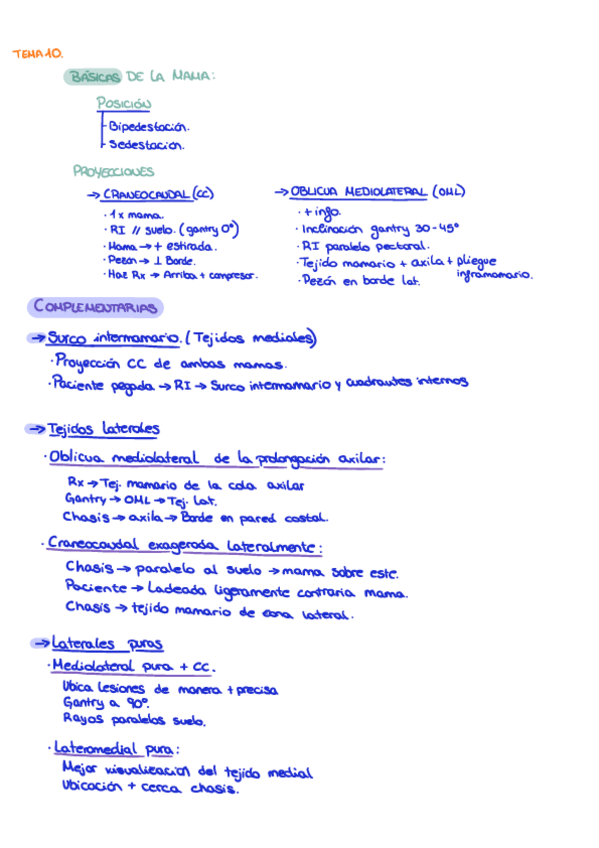 TEMA 10.
BÁSICAS DE LA MAMA:
POSICIÓN
- Bipedestación.
- Sedestación.
PROYECCIONES
→ CRANEOCAUDAL (CC)
· 1x mama.
· RI // suelo. (gantry 0º)
· Mama → + estirada.
· Pezón → ⊥ Borde.
· Haz Rx → Arriba + compresor.
→ OBLICUA MEDIOLATERAL (OML)
· + info.
· Inclinación gantry 30-45º
· RI paralelo pectoral.
· Tejido mamario + axila + pliegue
inframamario.
· Pezón en borde lat.
COMPLEMENTARIAS
→ Surco intermamario. (Tejidos mediales)
· Proyección CC de ambas mamas.
· Paciente pegada → RI → Surco intermamario y cuadrantes internos
→ Tejidos laterales
· Oblicua mediolateral de la prolongación axilar:
Rx → Tej. mamario de la cola axilar
Gantry → OML → Tej. lat.
Chasis → axila → Borde en pared costal.
· Craneocaudal exagerada lateralmente:
Chasis → paralelo al suelo → mama sobre este.
Paciente → Ladeada ligeramente contraria mama.
Chasis → tejido mamario de zona lateral.
→ Laterales puras
· Mediolateral pura + CC.
Ubica lesiones de manera + precisa
Gantry a 90º.
Rayos paralelos suelo.
· Lateromedial pura:
Mejor visualización del tejido medial
Ubicación + cerca chasis.